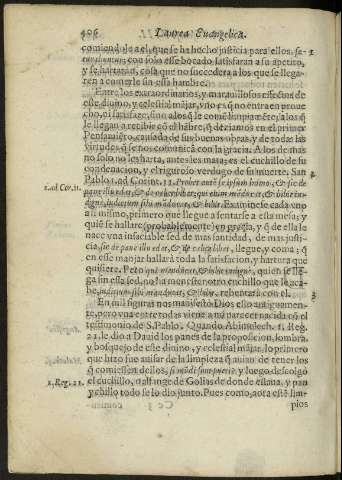 406 Laurea Euangelica.
comiendole a el, que se ha hecho justicia para ellos, sa-
turabuntur; con solo esse bocado satisfaran a su apetito,
y se hartaran, cosa que no succedera a los que se llega-
ren a comerle sin essa hambre.
Entre los extraordinarios, y marauillosos efectos de
este diuino, y celestial májar, vno es q̃ no entra en proue
cho, ni satisfaze, sino a los q̃ le comé limpiaméte; a los q̃
le llegan a recibir có el hábre, q̃ deziamos en el primer
Pensamiéto, causada de sus buenas obras, y de todas las
virtudes q̃ se nos comunicá con la gracia. A los de mas
no solo no les harta, antes les mata; es el cuchillo de su
condenacion, y el riguroso verdugo de su muerte. San
Pablo 1. ad Corint. 11. Probet autẽ se ipsum homo, & sic de
1. ad Cor. 11. pane illo edat, & de calice bibat; qui enim mãducat, & bibit indi-
gne, iudicium sibi mãducat, & bibit. Examinese cada vno
a si mismo, primero que llegue a sentarse a esta mesa; y
quié se hallare (probablemente) en gracia, y q̃ de ella le
nace vna insaciable sed de mas santidad, de mas justi-
cia, sic de pane illo edat, & de calice bibat, llegue, y coma; q̃
en esse manjar hallará toda la satisfacion, y hartura que
quisiere. Pero qui mãducat, & bibit indignè, quien se lle
ga sin essa sed, no ha menester otro cuchillo que le aca-
be, iudicium sibi manducat, & bibit, rebentará con el.
En mil figuras nos manifestò Dios esso antiguamen-
te, pero vna entre todas viene a nacer parecida có el
testimonio de S. Pablo. Quando Abimelech. 1. Reg.
21. le dio a Dauid los panes de la proposicion, sombra,
y bosquejo de este diuino, y celestial májar, lo primero
que hizo fue auisar de la limpieza q̃ auian de tener los
q̃ comiessen dellos, si mũdi sunt pueri: y luego descolgò
1. Reg. 21. el cuchillo, o alfange de Golias de donde estaua, y pan
y chillo todo se lo dio junto. Pues como, aora está lim-
pios